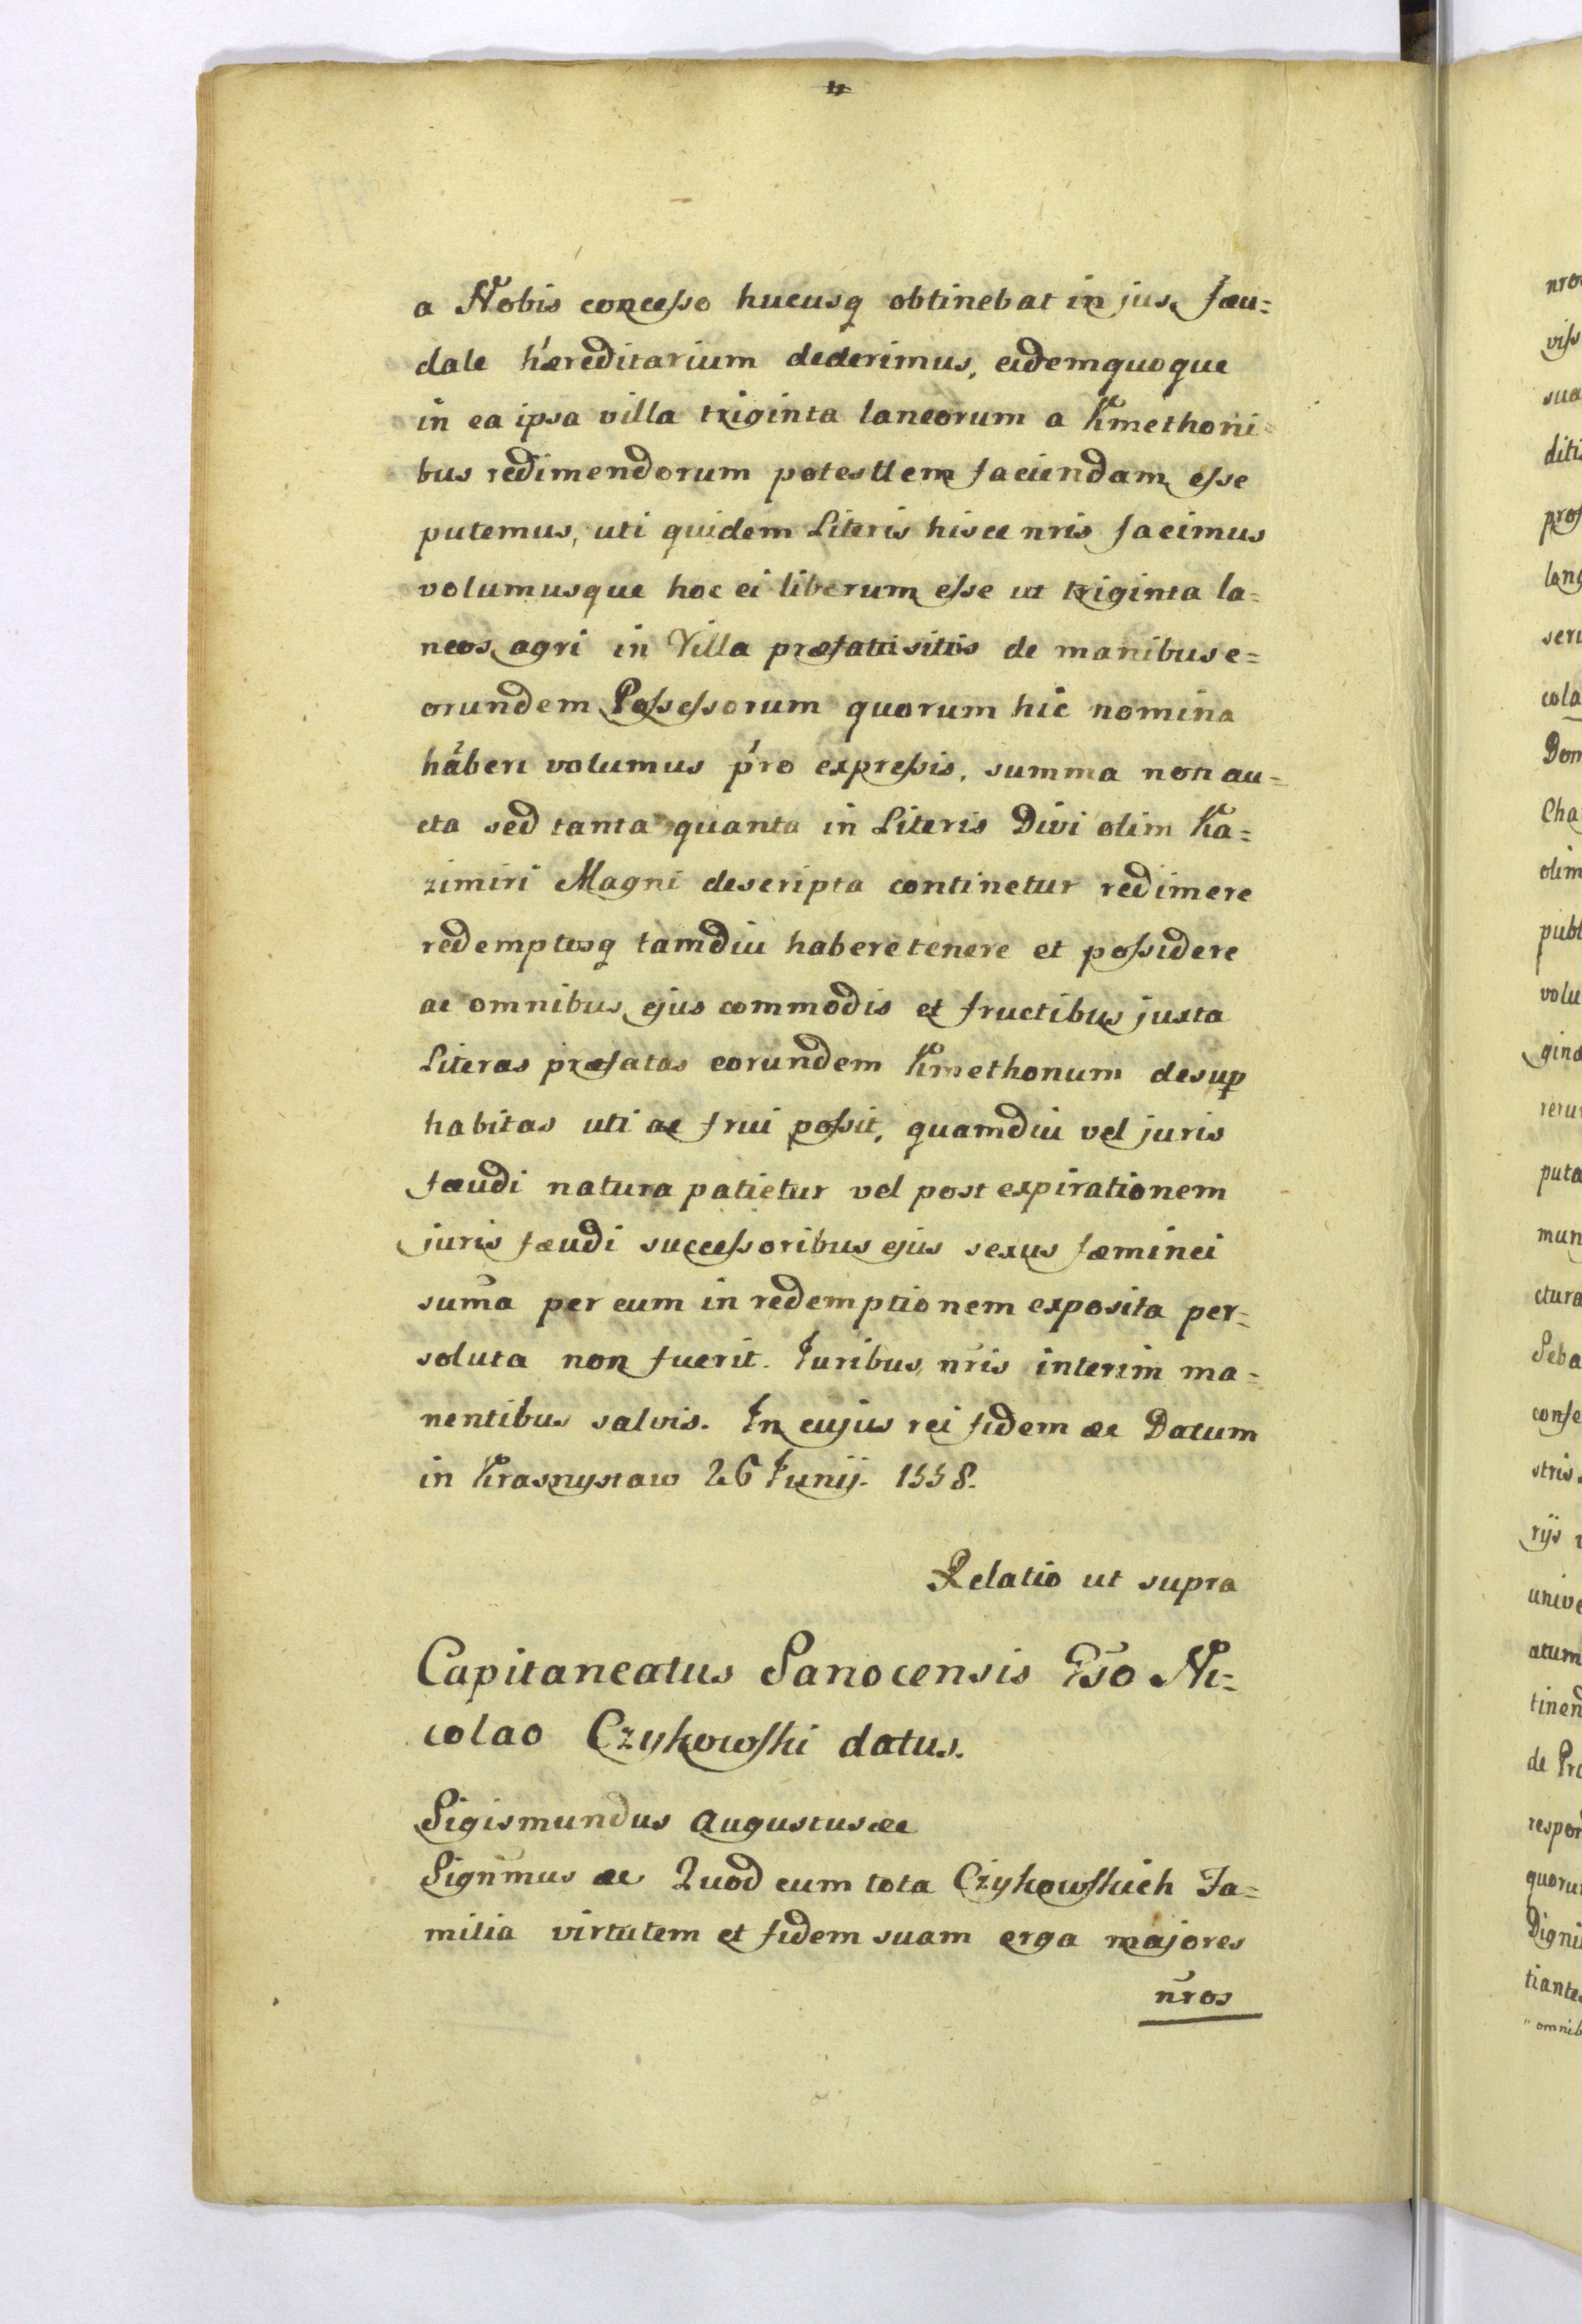 a Nobis concesso hucusq obtinebat in jus fæu=
dale hæreditarium dederimus, eidemquoque
in ea ipsa villa triginta laneorum a Kmethoni=
bus redimendorum potesttem faciendam esse
putemus, uti quidem Literis hisce nris facimus
volumusque hoc ei liberum esse ut triginta la=
neos agri in Villa præfatti sittis de manibus e=
orundem Possessorum quorum hic nomina
haberi volumus pro expressis, summa non au=
cta sed tanta quanta in Literis Divi olim Ka=
zimiri Magni descripta continetur redimere
redemptosq tamdiu habere tenere et possidere
ac omnibus ejus commodis et fructibus juxta
Literas præfatas eorundem Kmethonum desup
habitas uti ac frui possit, quamdiu vel juris
fæudi natura patietur vel post expirationem
juris fæudi successoribus ejus sexus fæminei
suma per eum in redemptionem exposita per=
soluta non fuerit. Juribus nris interim ma=
nentibus salvis. In cujus rei fidem &c Datum
in Krasnystaw 26 Junij. 1558.
Relatio ut supra
Capitaneatus Sanocensis Gso Ni=
colao Czykowski datus.
Sigismundus Augustus &c
Signmus &c Quod cum tota Czykowskich Fa=
milia virtutem et fidem suam erga majores
nros